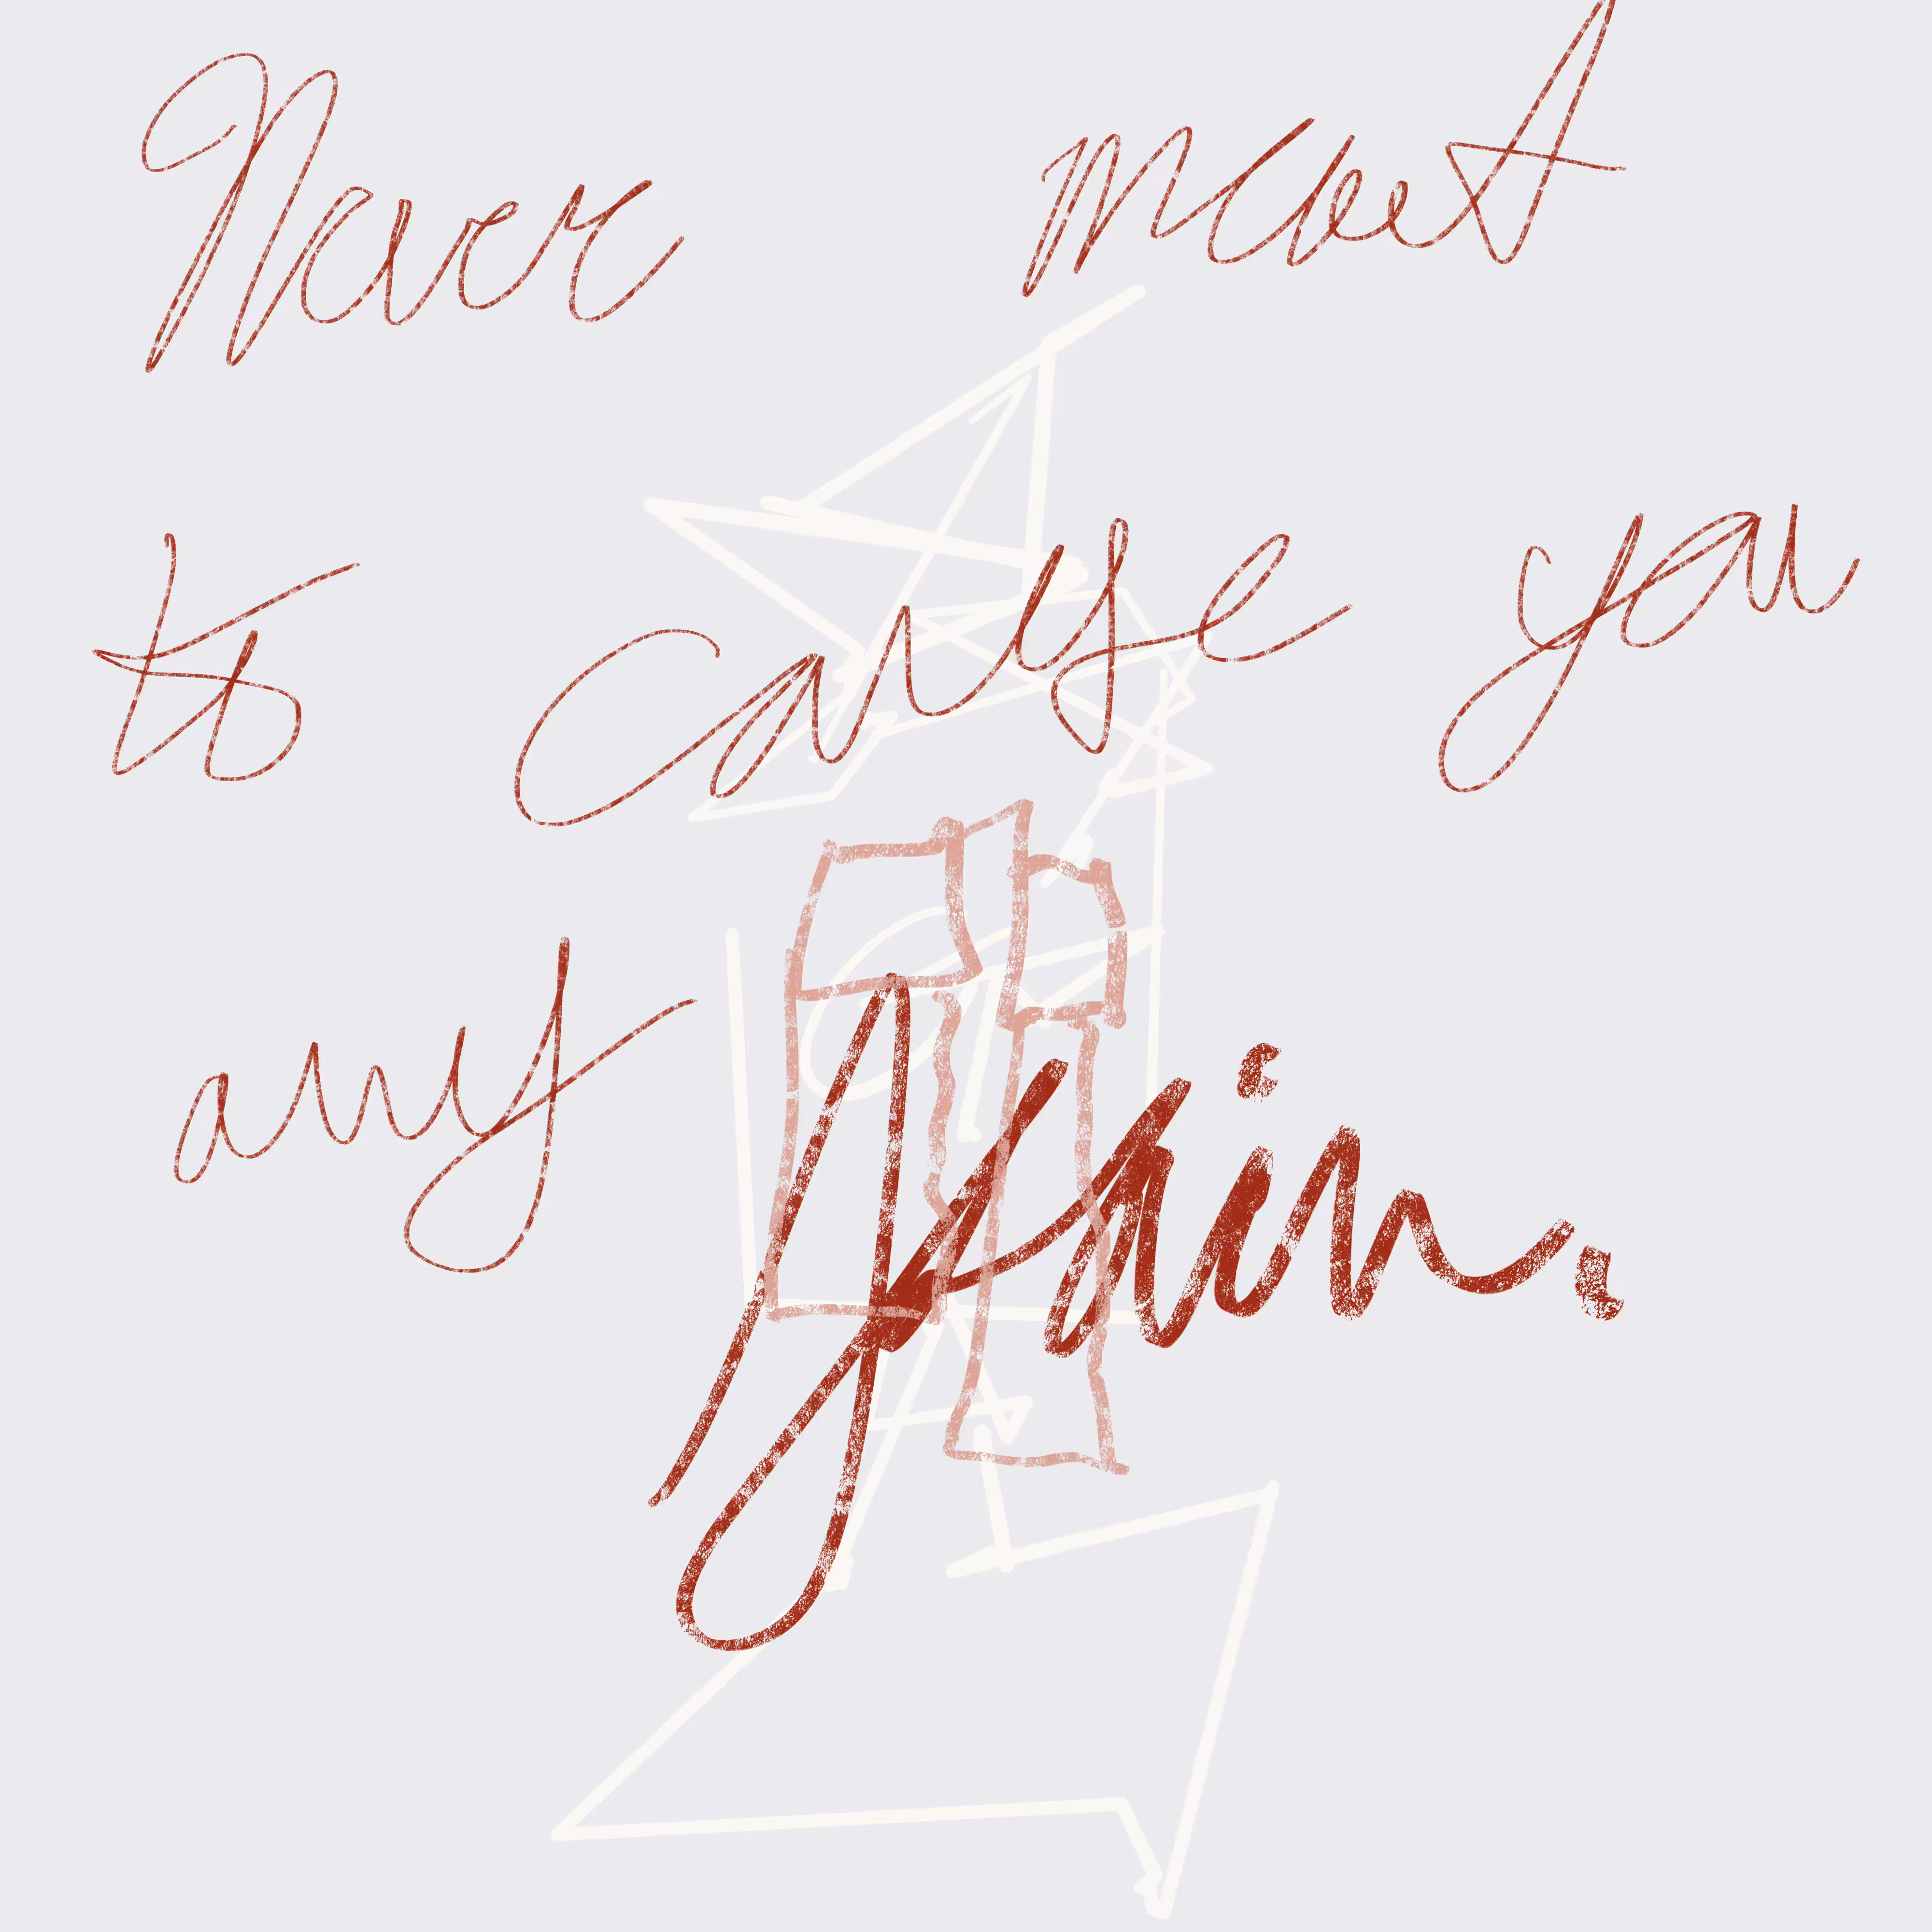 Never meant
to cause you
any pain.